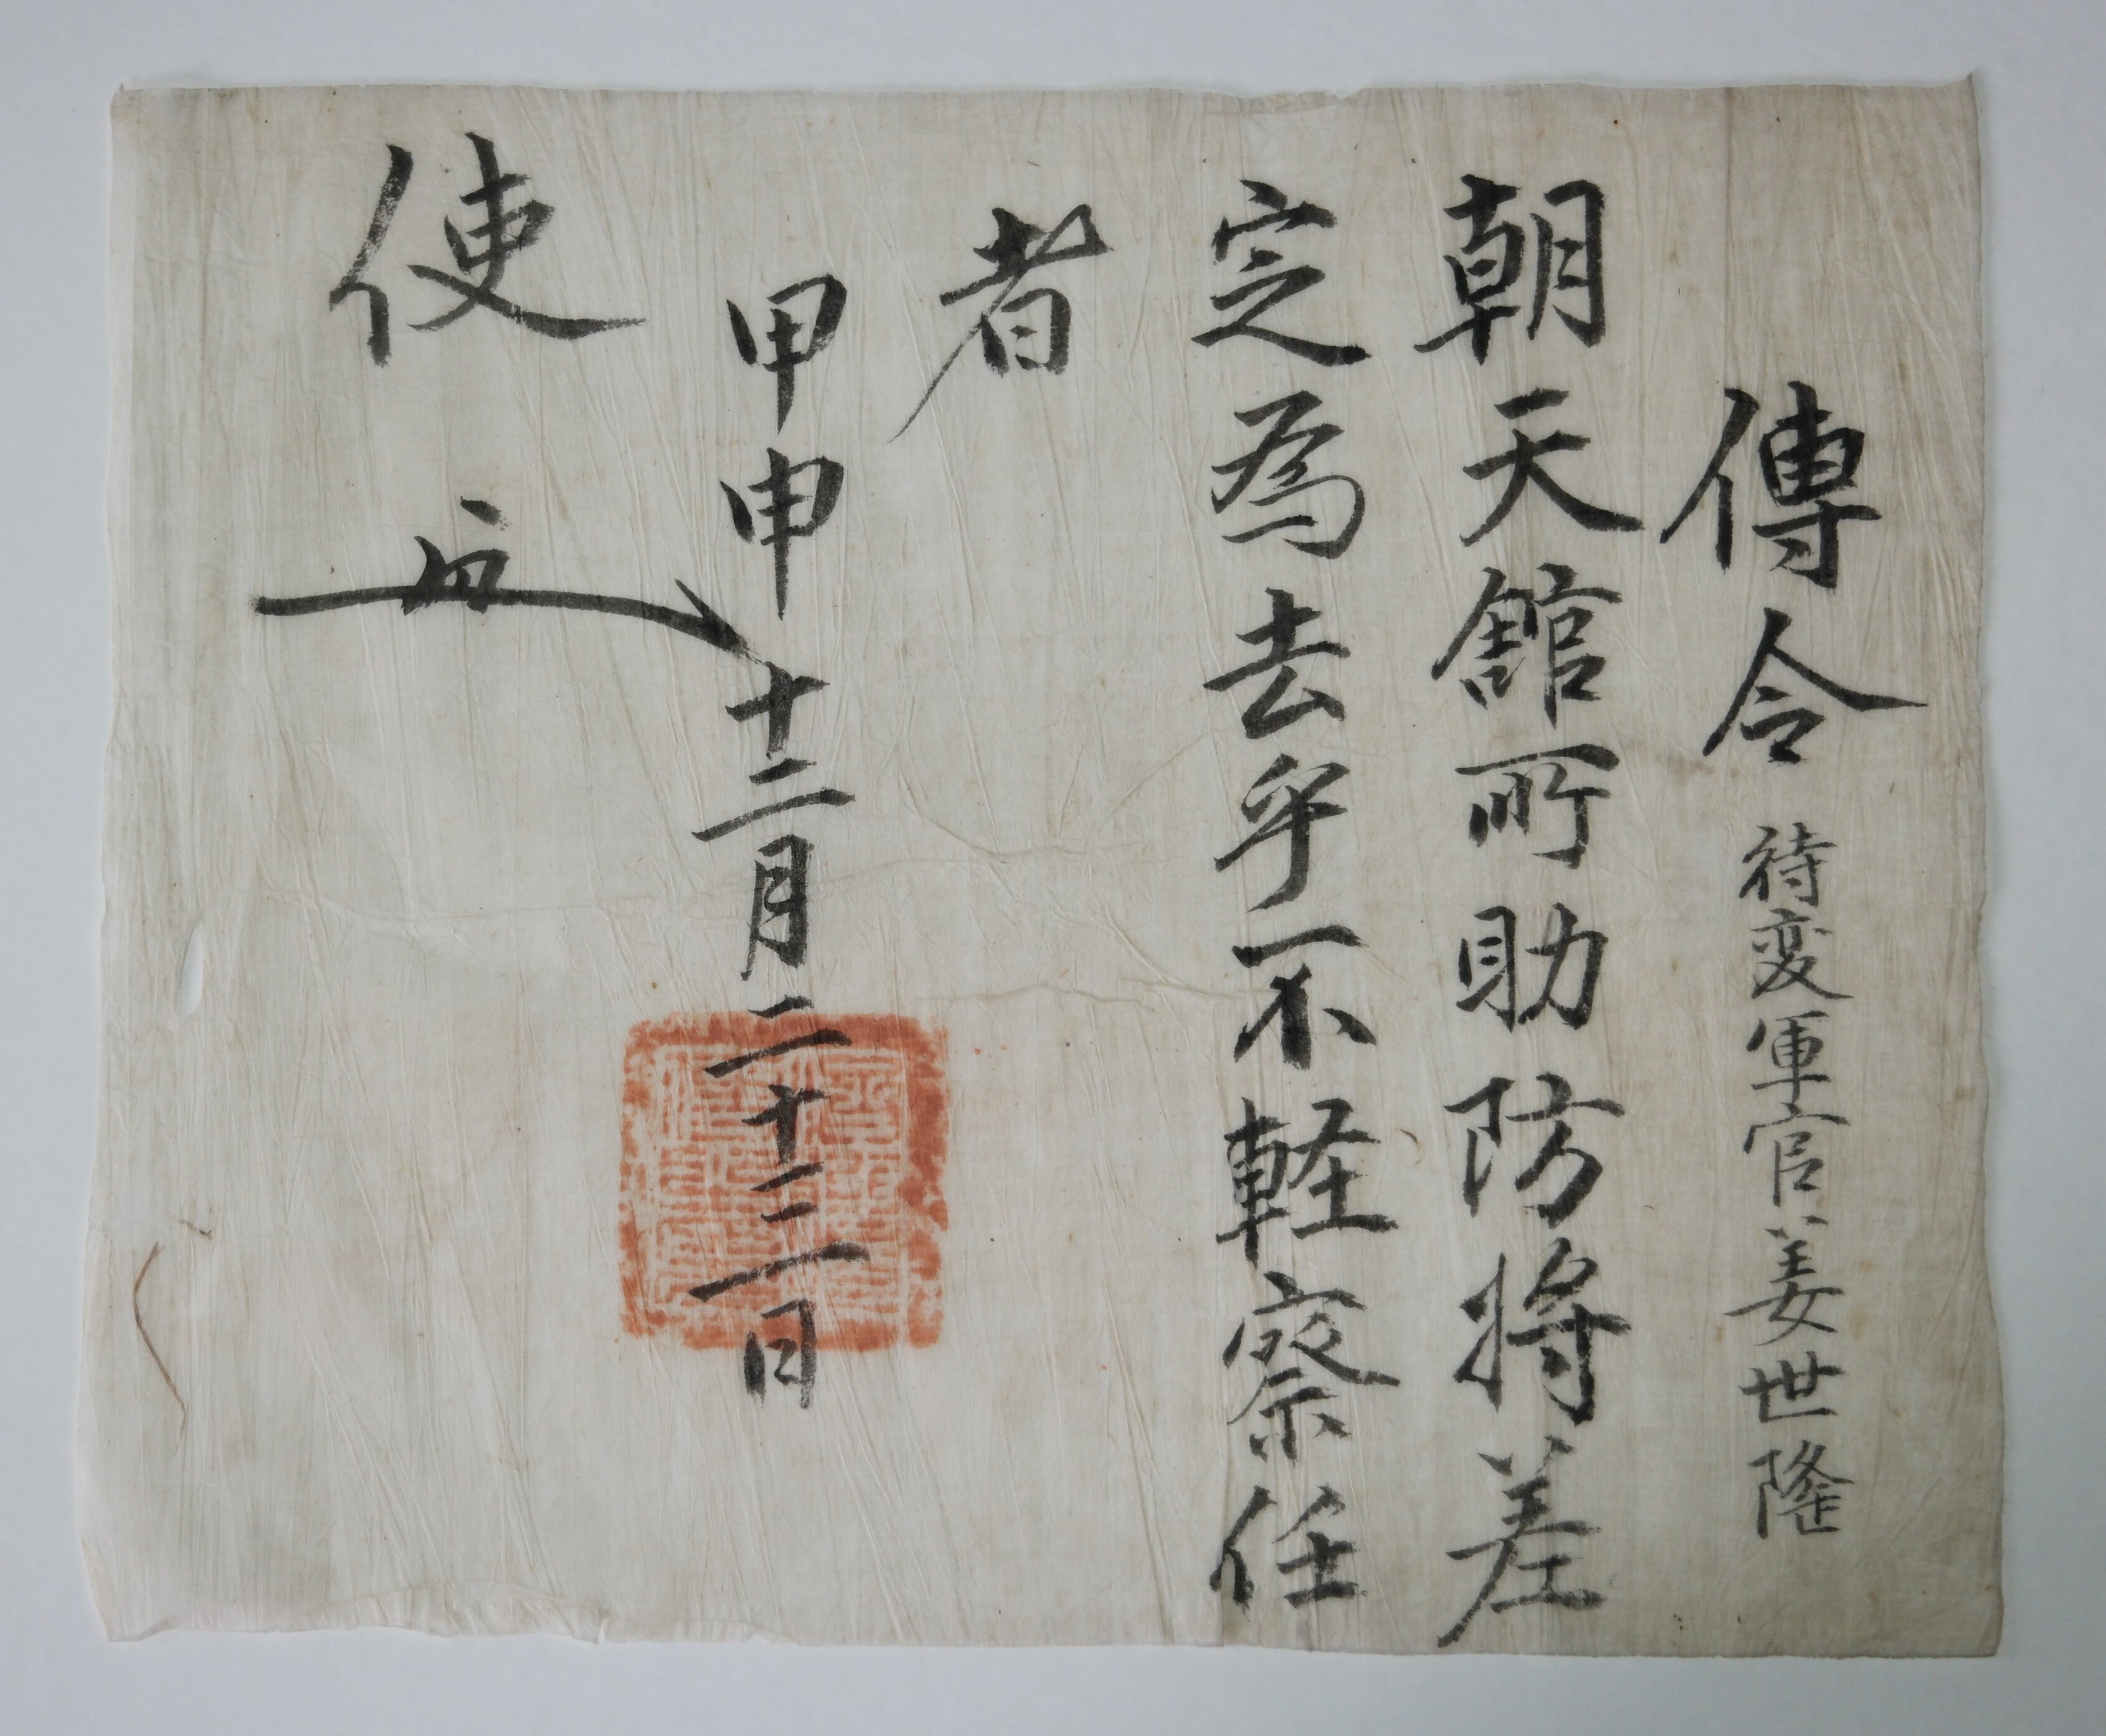 傳令 待変軍官姜世隆
朝天舘所助防將差
定為去乎不軽察任
者
甲申十二月二十三日
使